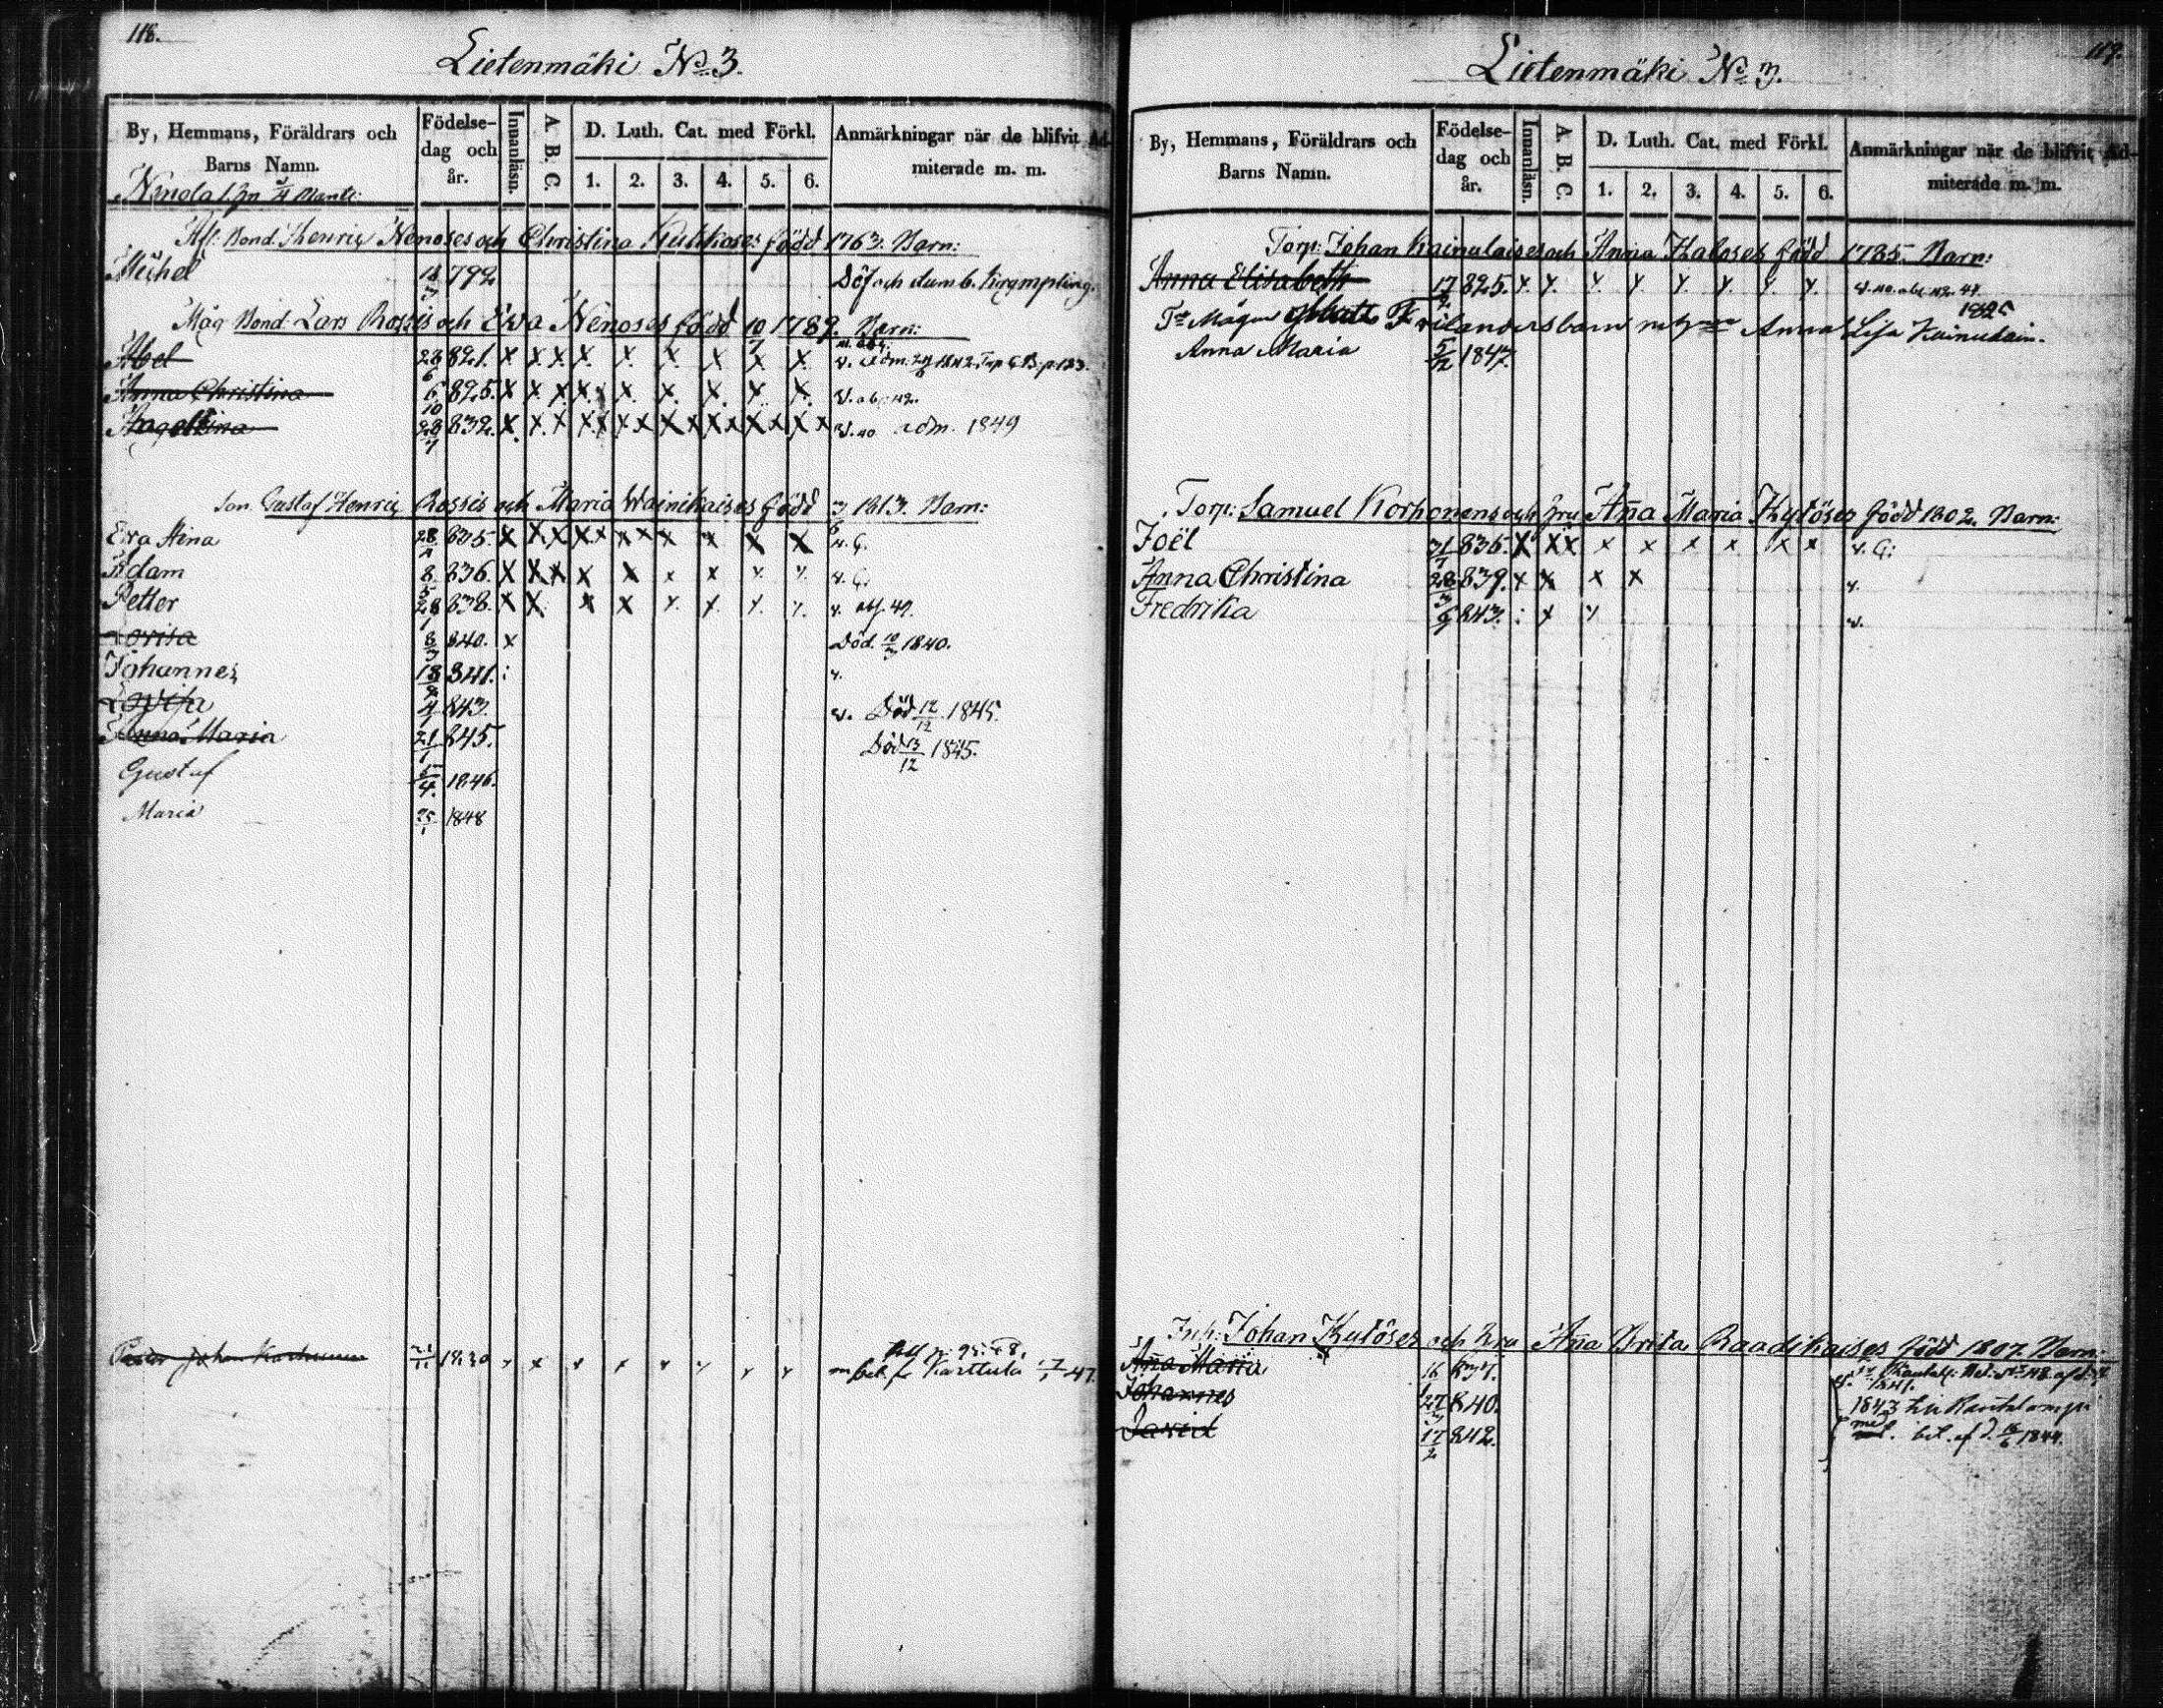 118.
Lietenmäki No 3.
By, Hemmans, Föräldrars och Barns Namn.
Födelse-dag och år.
Innanläsn.
A. B. C.
D. Luth. Cat. med Förkl.
1. 2. 3. 4. 5. 6.
Anmärkningar när de blifvit Ad-miterade m. m.
Bond. Henric Nenoses och Christina född 1763. Barn:
Michel 792 Döf och dum
Måg Bond. Lars Rossis och Ewa Nenoses född 10/7 1789. Barn:
Abel 28/6 821. x x x x x x x x x
Anna Christina 6/10 825. x x x x x x x x x
28/7 832. x x x x x x x x x x x adm. 1849
Son. Gustaf Henric Rossis och Maria Wainikaises född 1813. Barn:
Ewa Stina 28 835. x x x x x x x x x x
Adam 8/5 836. x x x x x x x
Petter 28/1 838. x x x x x x x x
Lovisa 8/3 840. x Död. 10/3 1840.
Johannes 18/2 841. :
Lovisa 4/1 843. Död 12/12 1845.
Anna Maria 21/1 845. Död 13/12 1845.
Gustaf 5/4 1846.
Maria 25/1 1848
Johan 1830 x x x x x x x x Karttula 47.
119.
Lietenmäki No 3.
By, Hemmans, Föräldrars och Barns Namn.
Födelse-dag och år.
Innanläsn.
A. B. C.
D. Luth. Cat. med Förkl.
1. 2. 3. 4. 5. 6.
Anmärkningar när de blifvit Ad-miterade m. m.
Torp: Johan Kainulaises och Anna Haloses född 1785. Barn:
Anna Elisabeth 17/2 825. x x x x x x x x
Mågen Matts Frilanders barn Anna Lisa Kainulain.
1825
Anna Maria 5/12 1847.
Torp: Samuel Korhonens och hru Anna Maria Kytöses född 1802. Barn:
Joël 31 835. x x x x x x x x x
Anna Christina 28/3 839. x x x x
Fredrika 843. : x x
Inh: Johan Kytöses och hru Anna Brita Raadikaises född 1807. Barn:
Anna Maria 16 837.
1841.
Johannes 27/3 840. 1843 Rautalampi
David 17/2 842. med bet. af d. 1844.